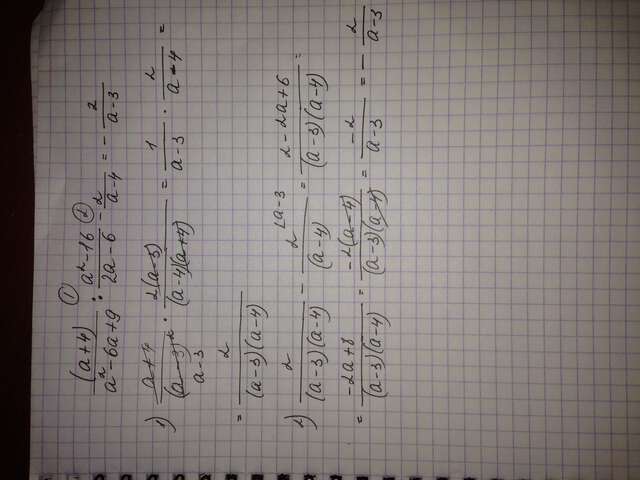 ① ②
(a+4)/(a²-6a+9) : (a²-16)/(2a-6) - 2/(a-4) = - 2/(a-3)
1) (a+4)/((a-3)²) · 2(a-3)/((a-4)(a+4)) = 1/(a-3) · 2/(a-4) =
a-3
= 2/((a-3)(a-4))
2) 2/((a-3)(a-4)) - 2/(a-4) ⌊a-3 = (2-2a+6)/((a-3)(a-4)) =
= (-2a+8)/((a-3)(a-4)) = -2(a-4)/((a-3)(a-4)) = -2/(a-3) = - 2/(a-3)